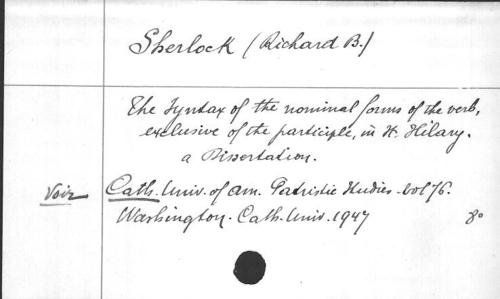 Sherlock (Richard B.)
The Syntax of the nominal forms of the verb,
exclusive of the participle, in St. Hilary.
a Dissertation.
Voir Cath. Univ. of Am. Patristic Studies. vol 76.
Washington. Cath. Univ. 1947 8°